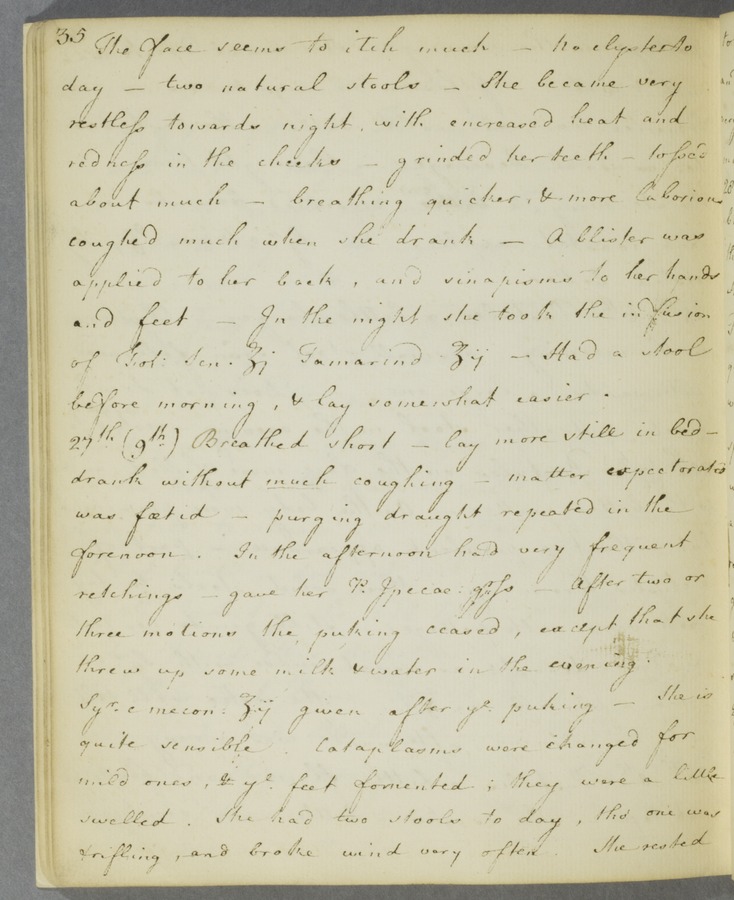 35
The face seems to itch much – no clyster to
day – two natural stools – She became very
restless towards night, with encreased heat and
redness in the cheeks – grinded her teeth – tossed
about much – breathing quicker, & more laborious
coughed much when she drank – A blister was
applied to her back, and sinapisms to her hands
and feet – In the night she took the infusion
of Fol: Sen. ʒj Tamarind ʒij – Had a stool
before morning, & lay somewhat easier.
27th (9th) Breathed short – lay more still in bed –
drank without much coughing – matter expectorated
was fœtid – purging draught repeated in the
forenoon. In the afternoon had very frequent
retchings – gave her P. Ipecac: grss – After two or
three motions the puking ceased, except that she
threw up some milk & water in the evening.
Syr. e mecon: ʒij given after ye puking – She is
quite sensible. Cataplasms were changed for
mild ones, & ye feet fomented; they were a little
swelled. She had two stools to day, tho' one was
trifling, and broke wind very often. She rested